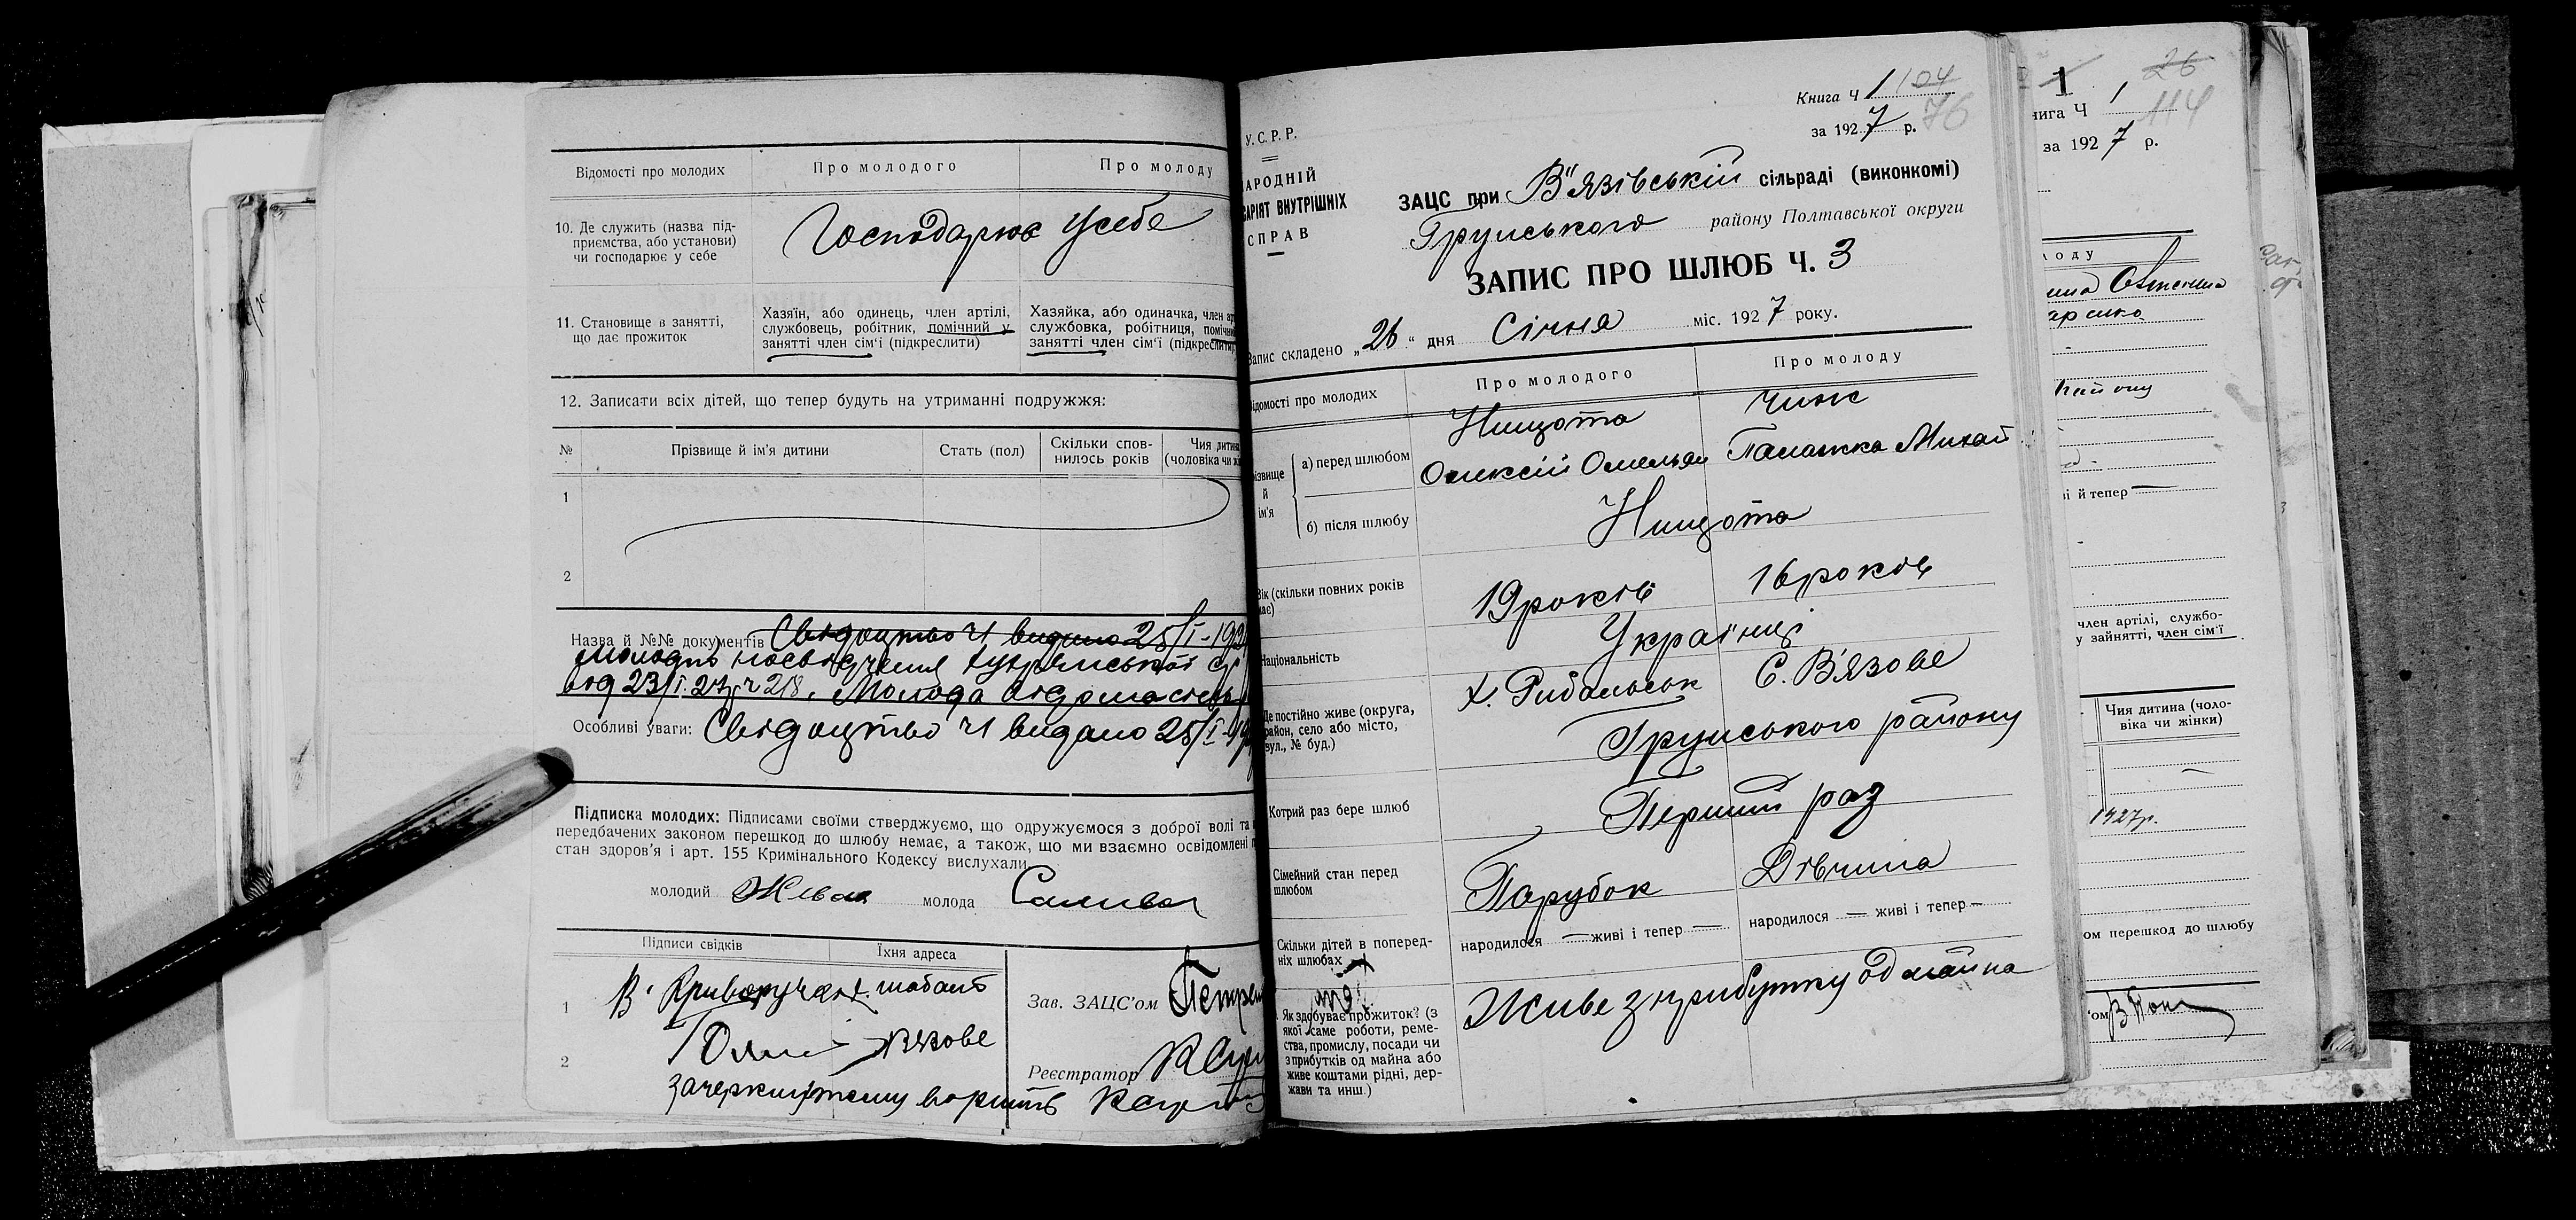 Відомості про молодих
Про молодого
Про молоду
10. Де служить (назва під-
приємства, або установи)
чи господарює у себе
Господарює усебе
11. Становище в занятті,
що дає прожиток
Хазяїн, або одинець, член артілі,
службовець, робітник, помічний у
занятті член сім'ї (підкреслити)
Хазяйка, або одиначка, член
службовка, робітниця,
занятті член сім'ї
12. Записати всіх дітей, що тепер будуть на утриманні подружжя:
№
Прізвище й ім'я дитини
Стать (пол)
Скільки спов-
нилось років
Чия дитина
(чоловіка чи
1
2
Назва й №№ документів Свідоцтво Ч видано 25/I-192
від 23/I. 27р. ч 218. Молода відома
Особливі уваги: Свідоцтво Ч видано 25/I-
Підписка молодих: Підписами своїми стверджуємо, що одружуємося з доброї волі та
передбачених законом перешкод до шлюбу немає, а також, що ми взаємно освідомлені
стан здоров'я і арт. 155 Кримінального Кодексу вислухали
молодий
молода
Підписи свідків
Їхня адреса
1
2
В'язове
Зав. ЗАЦС'ом
Реєстратор
зачеркнутому вірить
Книга Ч 1 104
за 1927 р. 76
У.С.Р.Р.
СПРАВ
ВНУТРІШНІХ
ЗАЦС при В"язівській сільраді (виконкомі)
Грунського району Полтавської округи
ЗАПИС ПРО ШЛЮБ Ч. 3
Запис складено „26“ дня Січня міс. 1927 року.
Відомості про молодих
Про молодого
Про молоду
й
ім'я
а) перед шлюбом
Нищота
Олексій Омельян
Чиж
Палажка Михай
б) після шлюбу
Нищота
Вік (скільки повних років
має)
19 років
16 років
Національність
Українці
Де постійно живе (округа,
район, село або місто,
вул., № буд.)
х. Рибальськ
С. В'язове
Грунського району
Котрий раз бере шлюб
Перший раз
Сімейний стан перед
шлюбом
Парубок
Дівчина
Скільки дітей в поперед-
ніх шлюбах
народилося — живі і тепер —
народилося — живі і тепер —
Як здобуває прожиток? (з
якої саме роботи, реме-
ства, промислу, посади чи
з прибутків од майна або
живе коштами рідні, дер-
жави та инш.)
Живе з прибутку од майна
1
26
Ч 1
114
за 1927 р.
й тепер —
член артілі, службо-
у зайнятті, член сім'ї
Чия дитина (чоло-
віка чи жінки)
1927р.
перешкод до шлюбу